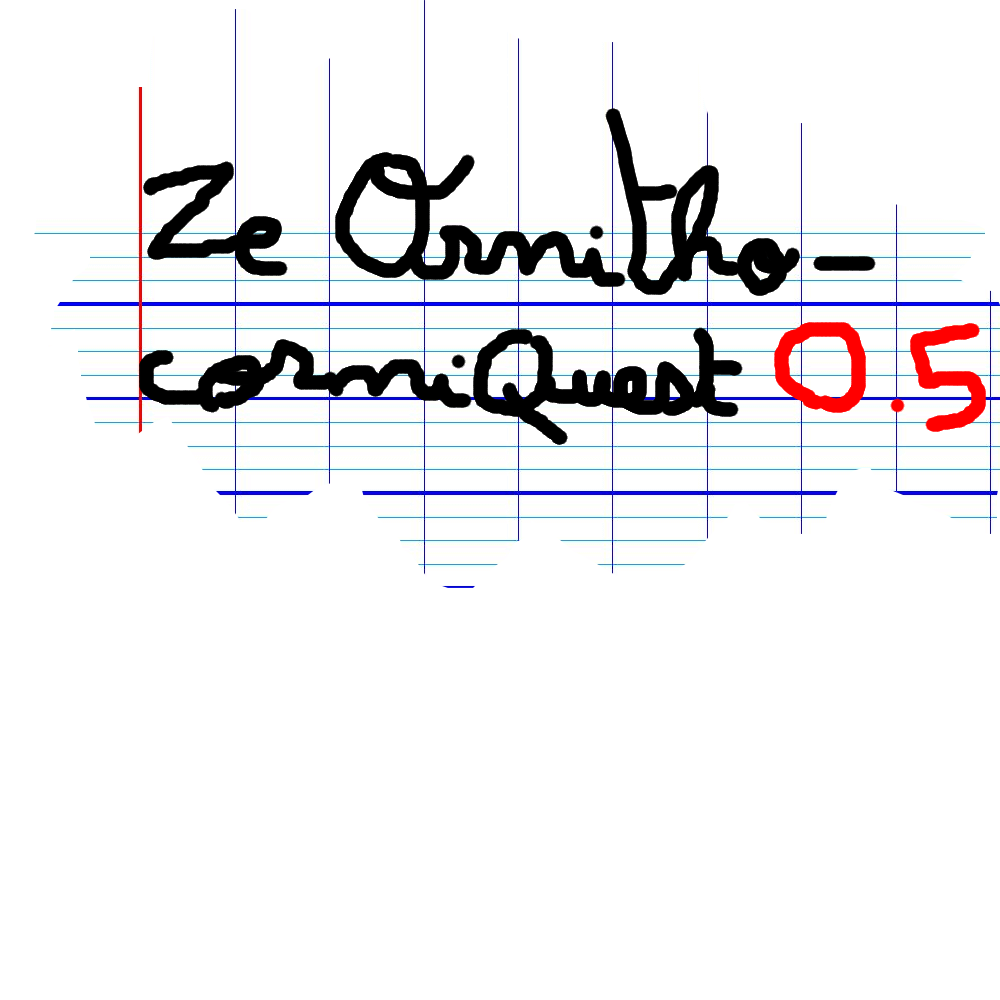 Ze Ornitho-
corniQuest 0.5